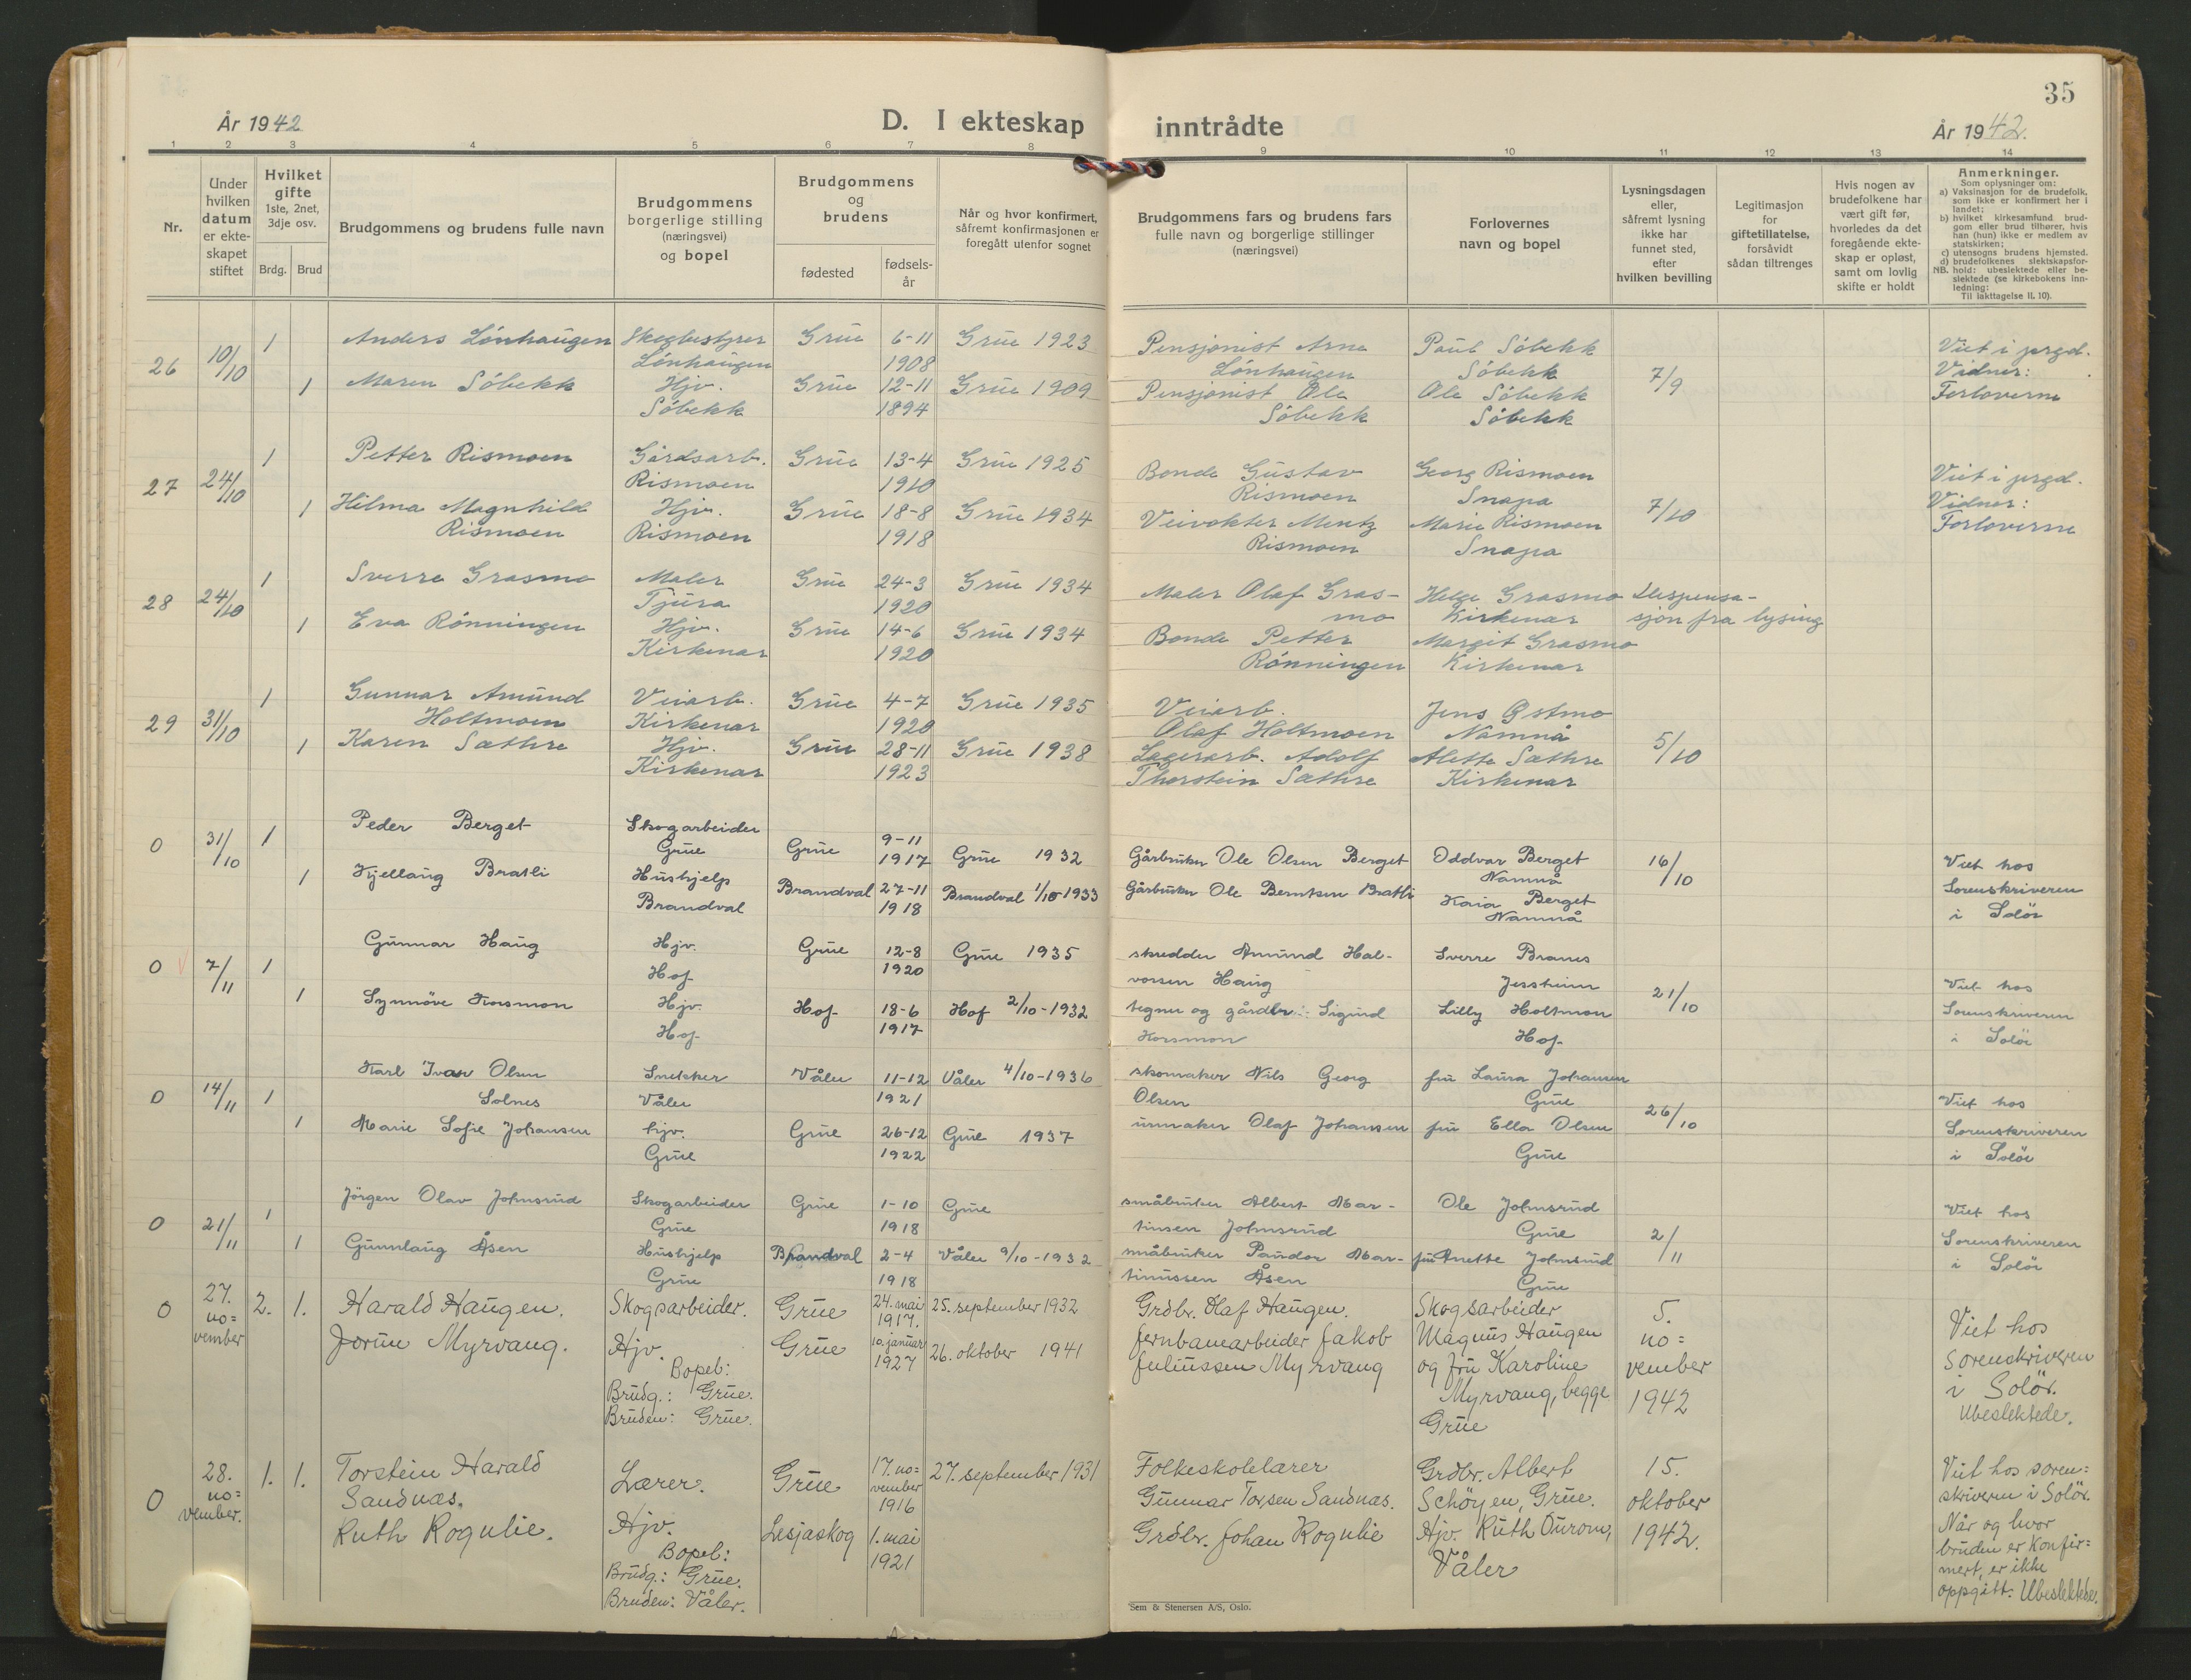 35
År 1942
D. I ekteskap inntrådte
År 1942.
1 2 3 4 5 6 7 8 9 10 11 12 13 14
Nr.
Under hvilken datum er ekte-skapet stiftet
Hvilket gifte
1ste, 2net, 3dje osv.
Brdg. Brud
Brudgommens og brudens fulle navn
Brudgommens borgerlige stilling (næringsvei) og bopel
Brudgommens og brudens
fødested
fødsels-år
Når og hvor konfirmert, såfremt konfirmasjonen er foregått utenfor sognet
Brudgommens fars og brudens fars fulle navn og borgerlige stillinger (næringsvei)
Forlovernes navn og bopel
Lysningsdagen eller, såfremt lysning ikke har funnet sted, efter hvilken bevilling
Legitimasjon for giftetillatelse, forsåvidt sådan tiltrenges
Hvis nogen av brudefolkene har vært gift før, hvorledes da det foregående ekte-skap er opløst, samt om lovlig skifte er holdt
Anmerkninger.
Som oplysninger om:
a) Vaksinasjon for de brudefolk, som ikke er konfirmert her i landet;
b) hvilket kirkesamfund brud-gom eller brud tilhører, hvis han (hun) ikke er medlem av statskirken;
c) utensogns brudens hjemsted.
d) brudefolkenes slektskapsfor-hold: ubeslektede eller be-slektede (se kirkebokens inn-ledning:
NB.
Til iakttagelse II. 10).
26 10/10 1 Anders Lönhaugen Skogbestyrer Grue 6-11 Grue 1923 Pensjonist Arne Paul Söbekk 7/9 Viet i prgd.
Lönhaugen 1908 Lönhaugen Söbekk Vidner:
1 Maren Söbekk Hjv. Grue 12-11 Grue 1909 Pensjonist Ole Ole Söbekk Forloverne
Söbekk 1894 Söbekk Söbekk
27 24/10 1 Petter Rismoen Gårdsarb. Grue 13-4 Grue 1925 Bonde Gustav Georg Rismoen 7/10 Viet i prgd.
Rismoen 1910 Rismoen Snapa Vidner:
1 Hilma Magnhild Hjv. Grue 18-8 Grue 1934 Veivokter Mentz Marie Rismoen Forloverne
Rismoen Rismoen 1918 Rismoen Snapa
28 24/10 1 Sverre Grasmo Maler Grue 24-3 Grue 1934 Maler Olaf Gras- Helge Grasmo Dispensa-
Tjura 1920 mo Kirkenær sjon fra lysing
1 Eva Rönningen Hjv. Grue 14-6 Grue 1934 Bonde Petter Margit Grasmo
Kirkenær 1920 Rönningen Kirkenær
29 31/10 1 Gunnar Amund Veiarb. Grue 4-7 Grue 1935 Veiarb. Jens Østmo 5/10
Holtmoen Kirkenær 1920 Olaf Holtmoen Namnå
1 Karen Sæthre Hjv. Grue 28-11 Grue 1938 Lagerarb. Adolf Alette Sæthre
Kirkenær 1923 Thorstein Sæthre Kirkenær
0 31/10 1 Peder Berget Skogarbeider Grue 9-11 Grue 1932 Gårbruker Ole Olsen Berget Oddvar Berget 16/10 Viet hos
Grue 1917 Namnå Sorenskriveren
1 Kjellaug Bratli Hushjelp Brandval 27-11 Brandval 1/10-1933 Gårbruker Ole Berntsen Bratli Kaia Berget i Solör
Brandval 1918 Namnå
0 7/11 1 Gunnar Haug Hjv. Grue 12-8 Grue 1935 skredder Amund Hal- Sverre Branes 21/10 Viet hos
Hof 1920 vorsen Haug Jessheim Sorenskriveren
1 Synnöve Korsmon Hjv. Hof 18-6 Hof 2/10-1932 tegner og gårdbr. Sigurd Lilly Holtmon i Solör
Hof 1917 Korsmon Hof
0 14/11 1 Karl Ivar Olsen Snekker Våler 11-12 Våler 4/10-1936 skomaker Nils Georg fru Laura Johansen 26/10 Viet hos
Solnes Våler 1921 Olsen Grue Sorenskriveren
1 Marie Sofie Johansen hjv. Grue 26-12 Grue 1937 urmaker Olaf Johansen fru Ella Olsen i Solör
Grue 1922 Grue
0 21/11 1 Jörgen Olav Johnsrud Skogarbeider Grue 1-10 Grue småbruker Albert Mar- Ole Johnsrud 2/11 Viet hos
Grue 1918 tinsen Johnsrud Grue Sorenskriveren
1 Gunnlaug Åsen Hushjelp Brandval 2-4 Våler 9/10-1932 småbruker Paudor Mar- fru Anette Johnsrud i Solör
Grue 1918 tinussen Åsen Grue
0 27. no=vember 2. 1. Harald Haugen. Skogsarbeider. Grue 24. mai 1917. 25. september 1932 Grdbr. Olaf Haugen. Skogsarbeider 5. Viet hos
Jorun Myrvang. Hjv. Grue 10. januar 1927 26. oktober 1941 Jernbanearbeider Jakob Magnus Haugen no= sorenskriveren
Bopel: Juliussen Myrvang og fru Karoline vember i Solör.
Brudg.: Grue. Myrvang, begge 1942 Ubeslektede.
Bruden: Grue. Grue
0 28. no=vember. 1. 1. Torstein Harald Lærer. Grue 17. no=vember 1916 27. september 1931 Folkeskolelærer Grdbr. Albert 15. Viet hos soren=
Sandnæs. Gunnar Torsen Sandnæs. Schöyen, Grue. oktober skriveren i Solör.
Ruth Rogulie. Hjv. Lesjaskog 1. mai 1921 Grdbr. Johan Rogulie Hjv. Ruth Ourom, 1942. Når og hvor
Bopel: Våler bruden er konfir=
Brudg.: Grue. mert, er ikke
Bruden: Våler. oppgitt. Ubeslektede.
Sem & Stenersen A/S, Oslo.